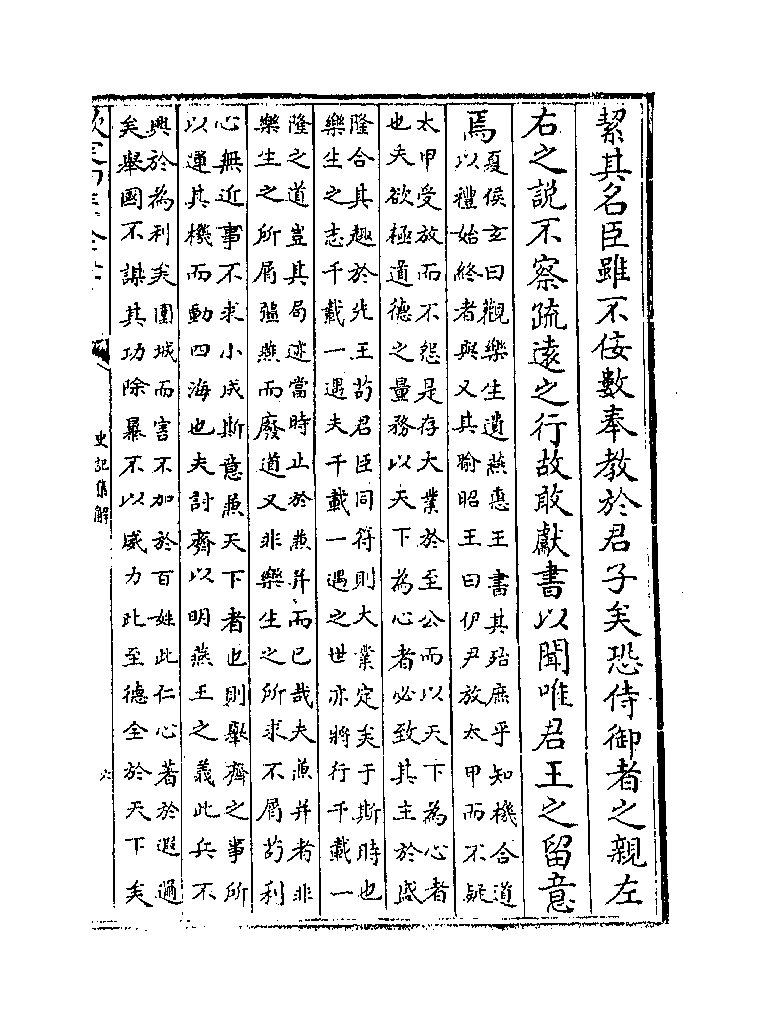 絜其名臣雖不佞數奉教於君子矣恐侍御者之親左
右之說不察疏遠之行故敢獻書以聞唯君王之留意
焉
夏侯玄曰觀樂生遺燕惠王書其殆庶乎知機合道
以禮始終者與又其喻昭王曰伊尹放太甲而不疑
太甲受放而不怨是存大業於至公而以天下為心者
也夫欲極道德之量務以天下為心者必致其主於盛
隆合其趣於先王茍君臣同符則大業定矣于斯時也
樂生之志千載一遇夫千載一遇之世亦將行千載一
隆之道豈其局迹當時止於兼并而已哉夫兼并者非
樂生之所屑彊燕而廢道又非樂生之所求不屑茍利
心無近事不求小成斯意兼天下者也則舉齊之事所
以運其機而動四海也夫討齊以明燕王之義此兵不
興於為利矣圍城而害不加於百姓此仁心著於遐邇
矣舉國不謀其功除暴不以威力此至德全於天下矣
史記集解
六